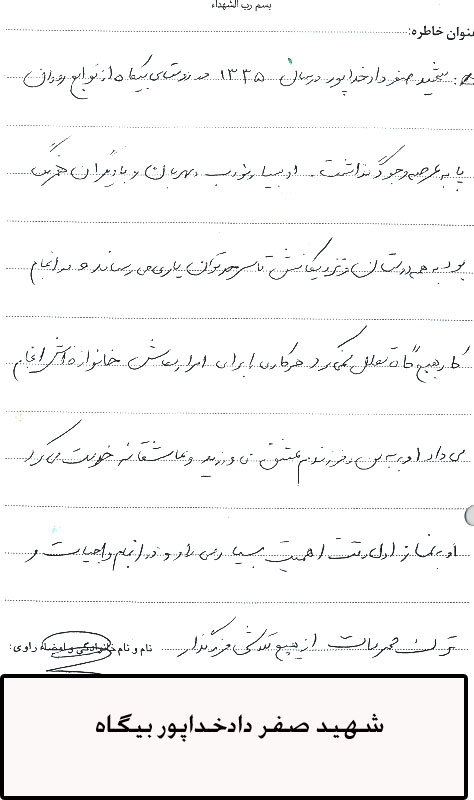 بسم رب الشهداء
عنوان خاطره:
شهید صفر دادخداپور در سال ۱۳۳۵ در روستای بیگاه از توابع رودان
پا به عرصه وجود گذاشت. او بسیار مودب مهربان و با دیگران خونگرم
بود به همه دوستان و نزدیکانش تا سر حد توان یاری می رساند و در انجام
کار هیچ گاه تعلل نمی کرد هر کاری برای امرار معاش خانواده اش انجام
می داد او به من و فرزندم عشق می ورزید و عاشقانه خدمت می کرد
او به نماز اول وقت اهمیت بسیار می داد و در انجام واجبات و
ترک محرمات از هیچ تلاشی فروگذار
نام و نام خانوادگی و امضاء راوی:
شهید صفر دادخداپور بیگاه